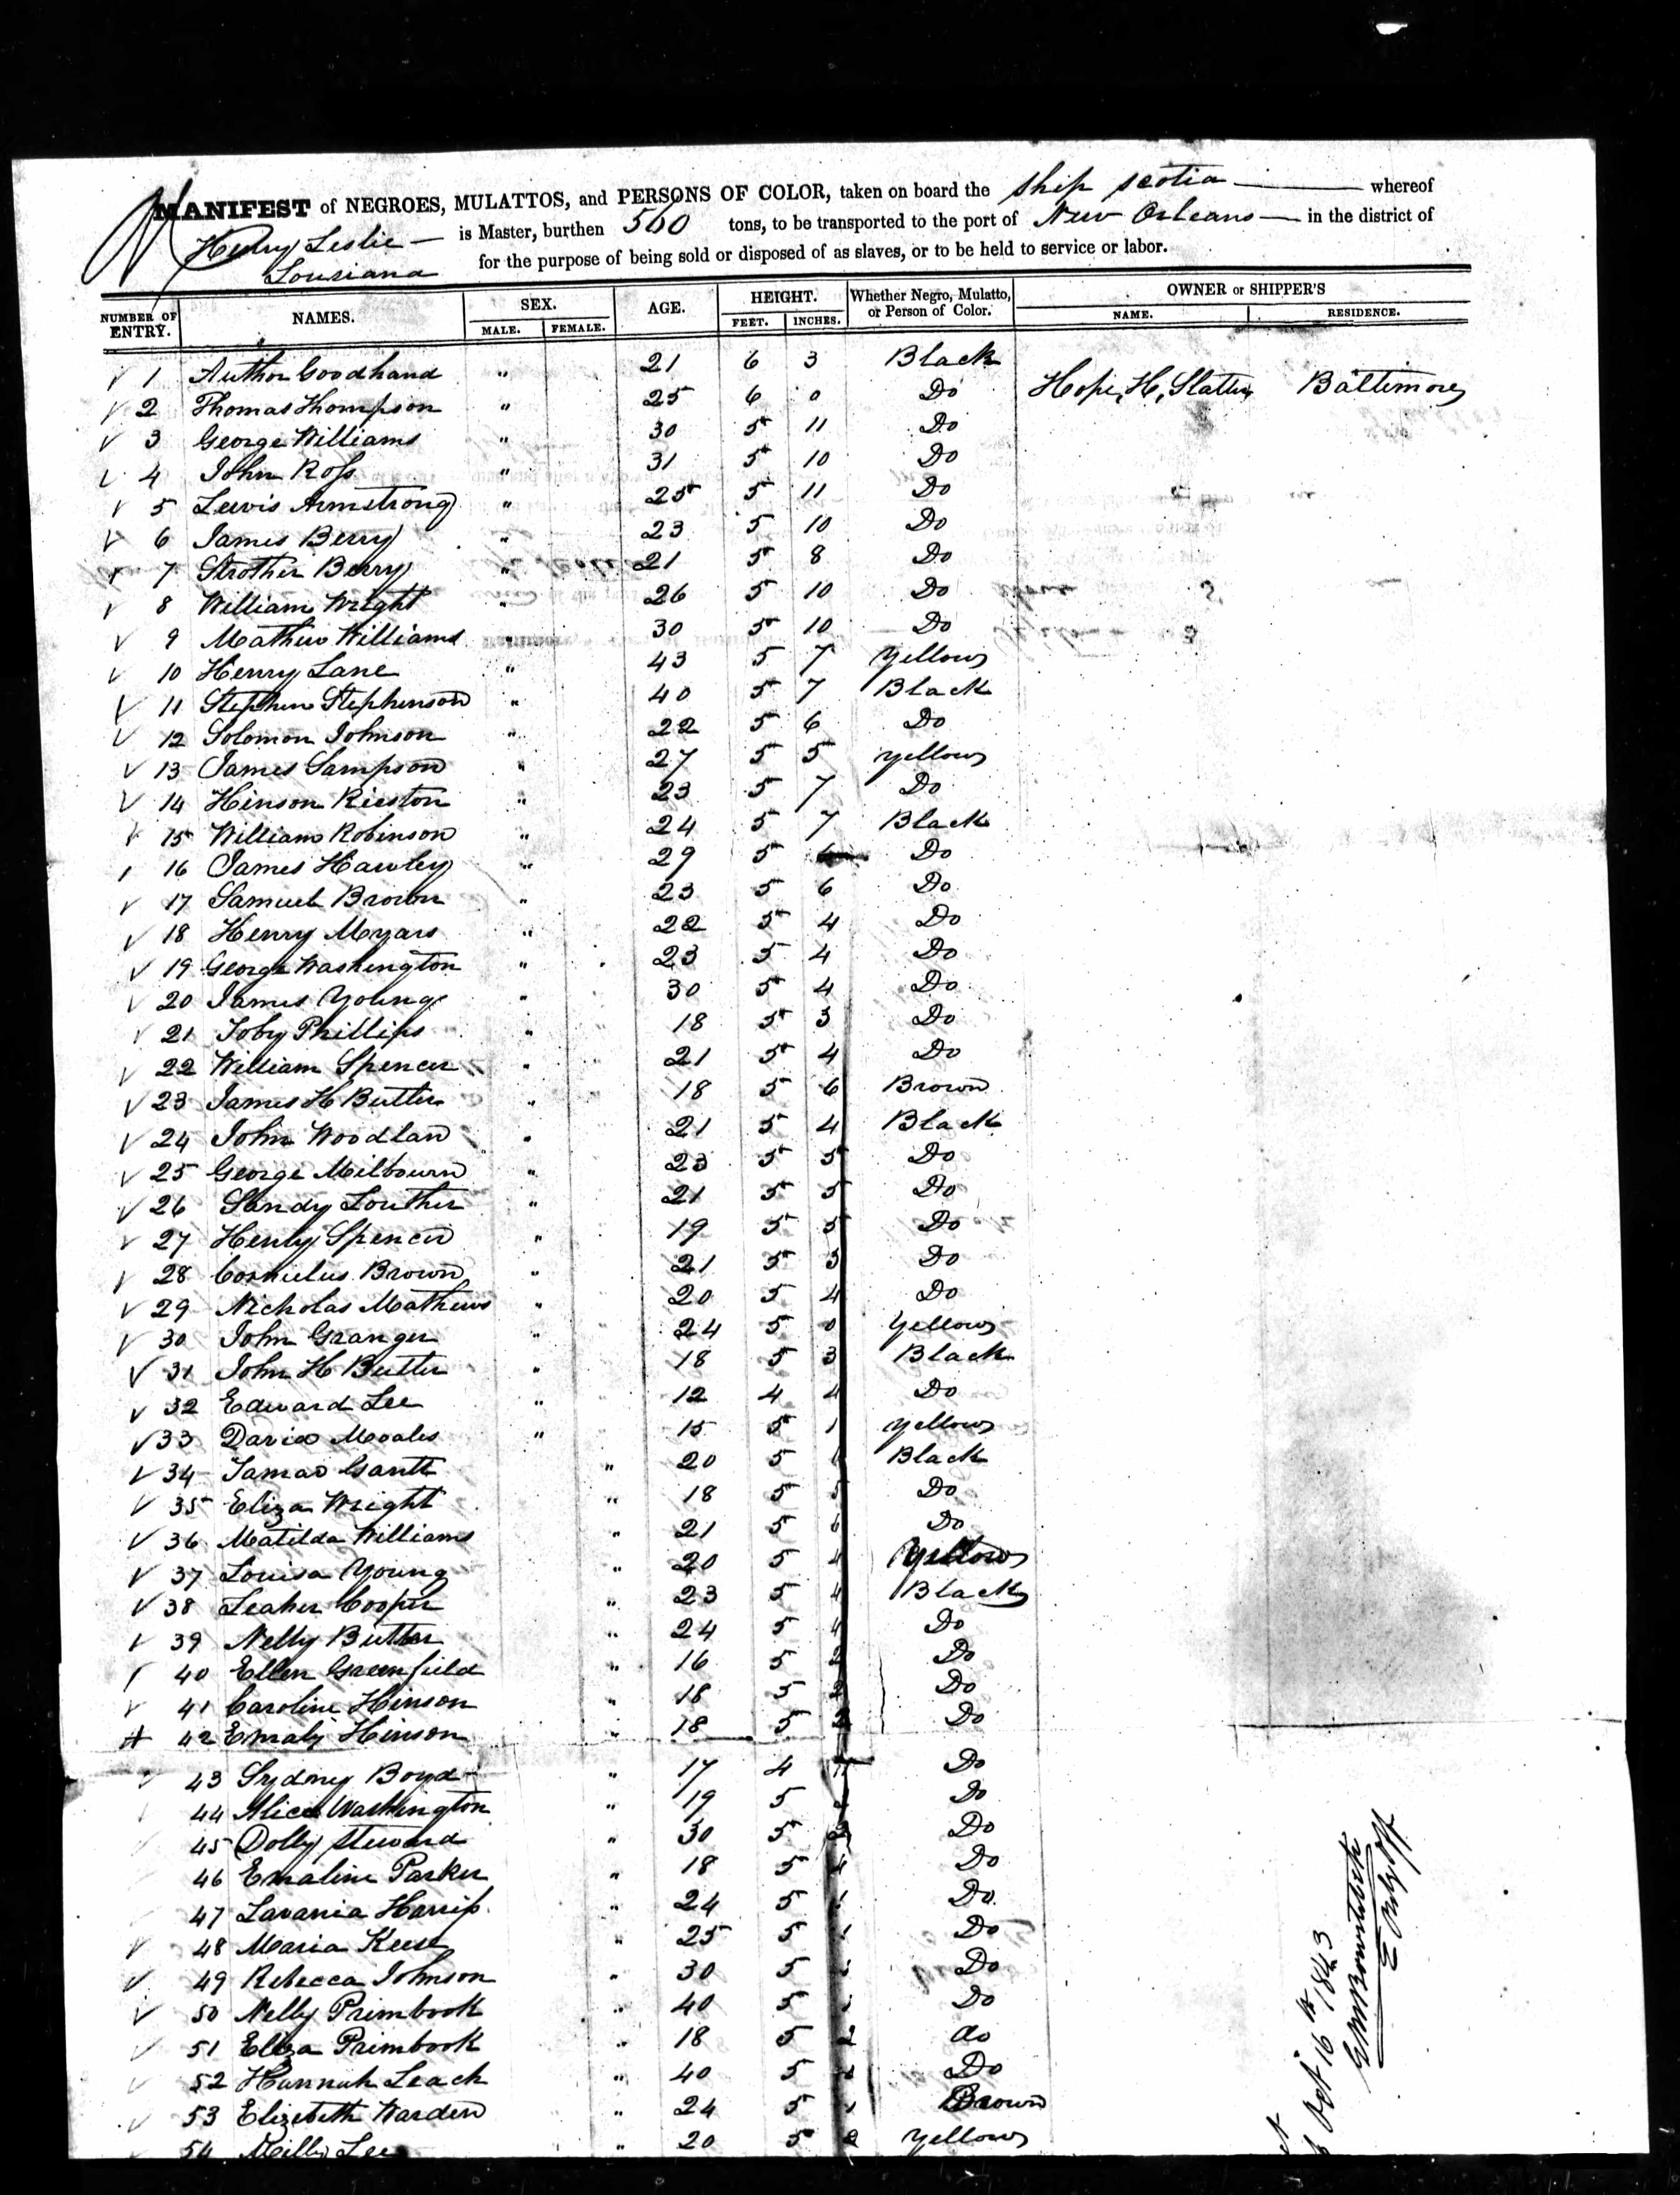 MANIFEST of NEGROES, MULATTOS, and PERSONS OF COLOR, taken on board the Ship Scotia whereof
Henry Leslie is Master, burthen 560 tons, to be transported to the port of New Orleans in the district of
Louisiana for the purpose of being sold or disposed of as slaves, or to be held to service or labor.
NUMBER OF ENTRY. NAMES. SEX. MALE. FEMALE. AGE. HEIGHT. FEET. INCHES. Whether Negro, Mulatto, or Person of Color. OWNER or SHIPPER'S NAME. RESIDENCE.
1 Author Goodhand " 21 6 3 Black
2 Thomas Thompson " 25 6 0 Do Hope, H, Slatter Baltimore
3 George Williams " 30 5 11 Do
4 John Ross " 31 5 10 Do
5 Lewis Armstrong " 25 5 11 Do
6 James Berry " 23 5 10 Do
7 Strother Berry " 21 5 8 Do
8 William Wright " 26 5 10 Do
9 Mathew Williams " 30 5 10 Do
10 Henry Lane " 43 5 7 Yellow
11 Stephen Stephenson " 40 5 7 Black
12 Solomon Johnson " 22 5 6 Do
13 James Sampson " 27 5 5 Yellow
14 Hinson Rieston " 23 5 7 Do
15 William Robinson " 24 5 7 Black
16 James Hawley " 29 5 Do
17 Samuel Brown " 23 5 6 Do
18 Henry Myars " 22 5 4 Do
19 George Washington " 23 5 4 Do
20 James Young " 30 5 4 Do
21 Toby Phillips " 18 5 3 Do
22 William Spencer " 21 5 4 Do
23 James H Butler " 18 5 6 Brown
24 John Woodlan " 21 5 4 Black
25 George Milbourn " 23 5 5 Do
26 Sandy Louther " 21 5 5 Do
27 Henry Spencer " 19 5 5 Do
28 Cornielus Brown " 21 5 3 Do
29 Nicholas Mathews " 20 5 4 Do
30 John Granger " 24 5 0 Yellow
31 John H Butler " 18 5 3 Black
32 Edward Lee " 12 4 4 Do
33 David Moales " 15 5 1 Yellow
34 Tamar Gantt " 20 5 Black
35 Eliza Wright " 18 5 5 Do
36 Matilda Williams " 21 5 6 Do
37 Louisa Young " 20 5 4 Yellow
38 Leaher Cooper " 23 5 4 Black
39 Nelly Butler " 24 5 4 Do
40 Ellen Greenfield " 16 5 2 Do
41 Caroline Hinson " 18 5 2 Do
42 Emaly Hinson " 18 5 2 Do
43 Sydney Boyd " 17 4 11 Do
44 Alice Washington " 19 5 Do
45 Dolly Steward " 30 5 3 Do
46 Emaline Parker " 18 5 4 Do
47 Lavania Harris " 24 5 1 Do
48 Maria Keese " 25 5 1 Do
49 Rebecca Johnson " 30 5 Do
50 Nelly Primbook " 40 5 Do
51 Eliza Primbook " 18 5 2 do
52 Hannah Leach " 40 5 Do
53 Elizebeth Warden " 24 5 1 Brown
54 Milly Lee " 20 5 2 Yellow
Oct 16th 1843